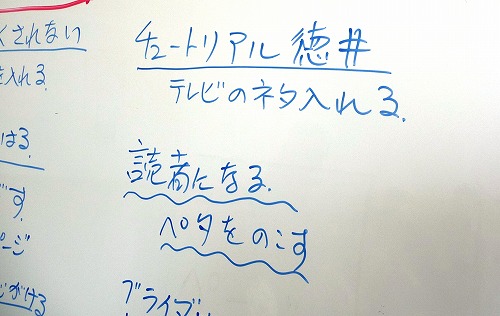 くされない
を入れる.
はる.
す.
ページ
がける
チュートリアル 徳井
テレビのネタ入れる.
読者になる.
ペタをのこす